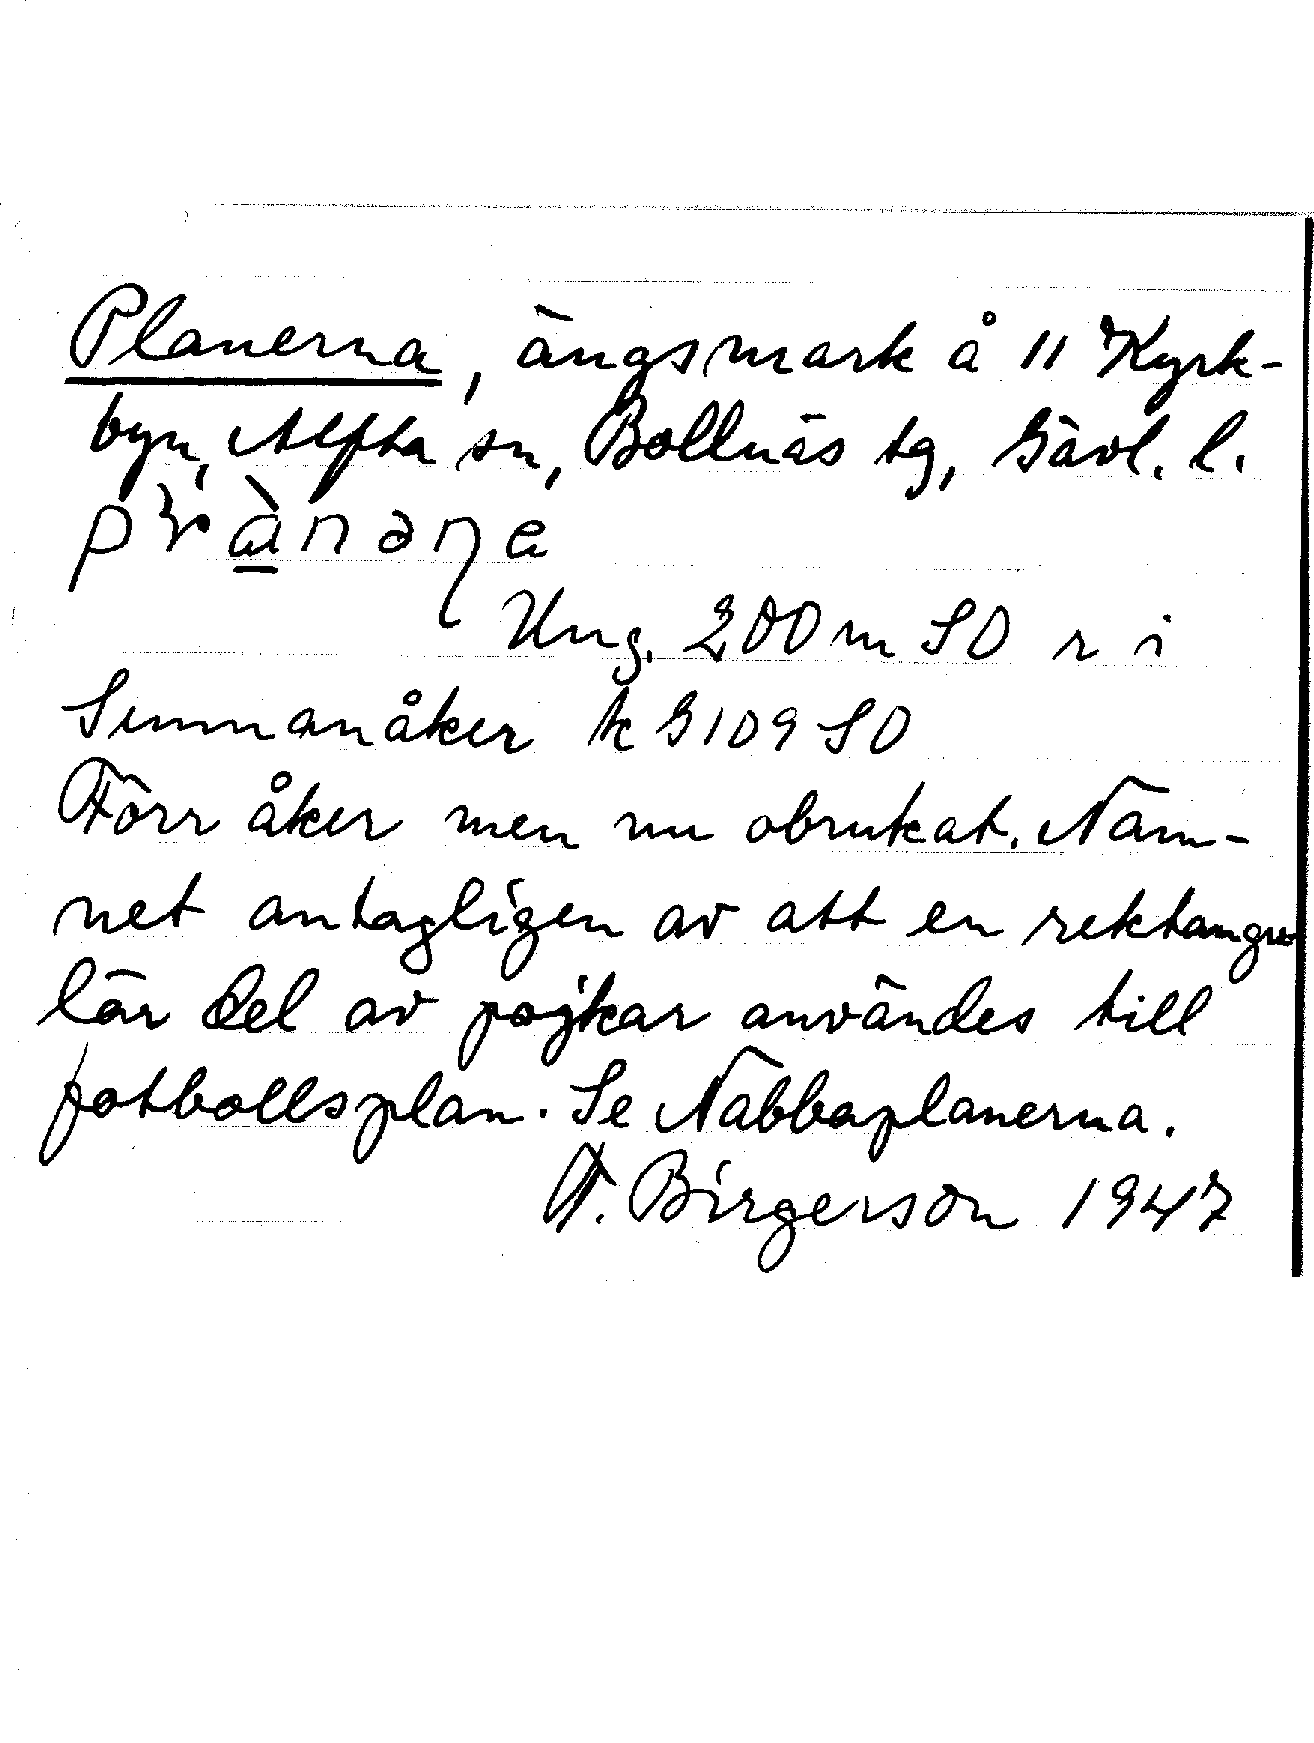 Planerna, ängsmark å 11 Kyrk-
byn, Alfta sn, Bollnäs tg, Gävl. l.
Ung. 200 m SO r i
Sunnanåker k G 109 SO
Förr åker men nu obrukat. Nam-
net antagligen av att en rektangu
lär del av pojkar användes till
fotbollsplan. Se Nabbaplanerna.
F. Birgerson 1947